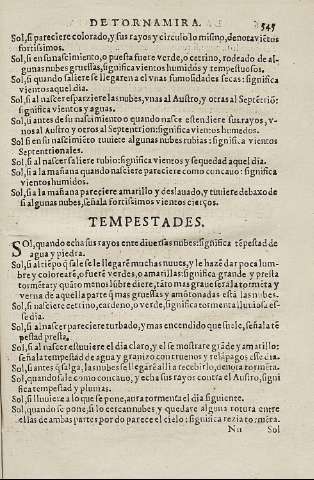 DE TORNAMIRA. 545
Sol, si pareciere colorado, y sus rayos y circulo lo mismo, denota viẽtos
fortissimos.
Sol, si en su nacimiento, o puesta fuere verde, o cetrino, rodeado de al-
gunas nubes gruessas, significa vientos humidos y tempestuosos.
Sol, si quando saliere se llegaren a el vnas fumosidades secas: significa
vientos aquel dia.
Sol, si al nascer esparziere las nubes, vnas al Austro, y otras al Septẽtriõ:
significa vientos y aguas.
Sol, si antes de su nascimiento o quando nasce estendiere sus rayos, v-
nos al Austro y otros al Septentrion: significa vientos humidos.
Sol si en su nascimiẽto tuuiere algunas nubes rubias: significa vientos
Septentrionales.
Sol, si al nascer saliere rubio: significa vientos y sequedad aquel dia.
Sol, si a la mañana quando nasciere pareciere como concauo: significa
vientos humidos.
Sol, si a la mañana pareciere amarillo y deslauado, y tuuiere debaxo de
si algunas nubes, señala fortissimos vientos cierços.
TEMPESTADES.
SOl, quando echa sus rayos entre diuersas nubes: significa tẽpestad de
agua y piedra.
Sol, si al tiẽpo q̃ sale se le llegarẽ muchas nuues, y le hazẽ dar poca lum-
bre y colorearẽ, o fuerẽ verdes, o amarillas: significa grande y presta
tormẽta: y quãto menos lũbre diere, tãto mas graue serà la tormẽta y
verna de aquella parte q̃ mas gruessas y amõtonadas està las nubes.
Sol, si nasciere cetrino, cardeno, o verde, significa tormenta lluuiosa es-
se dia.
Sol, si al nascer pareciere turbado, y mas encendido que suele, señala tẽ
pestad presta.
Sol, si al nascer estuuiere el dia claro, y el se mostrare grãde y amarillo:
señala tempestad de agua y granizo con truenos y relãpagos esse dia.
Sol, si antes q̃ salga, las nubes se llegarẽ alli a recebirlo, denota tormẽta.
Sol, quando sale como concauo, y echa sus rayos contra el Austro, signi
fica tempestad y pluuias.
Sol, si lluuiere a lo que se pone, aura tormenta el dia siguiente.
Sol, quando se pone, si lo cercan nubes y quedare alguna rotura entre
ellas de ambas partes por do parece el cielo: significa rezia tormẽta.
Nn Sol